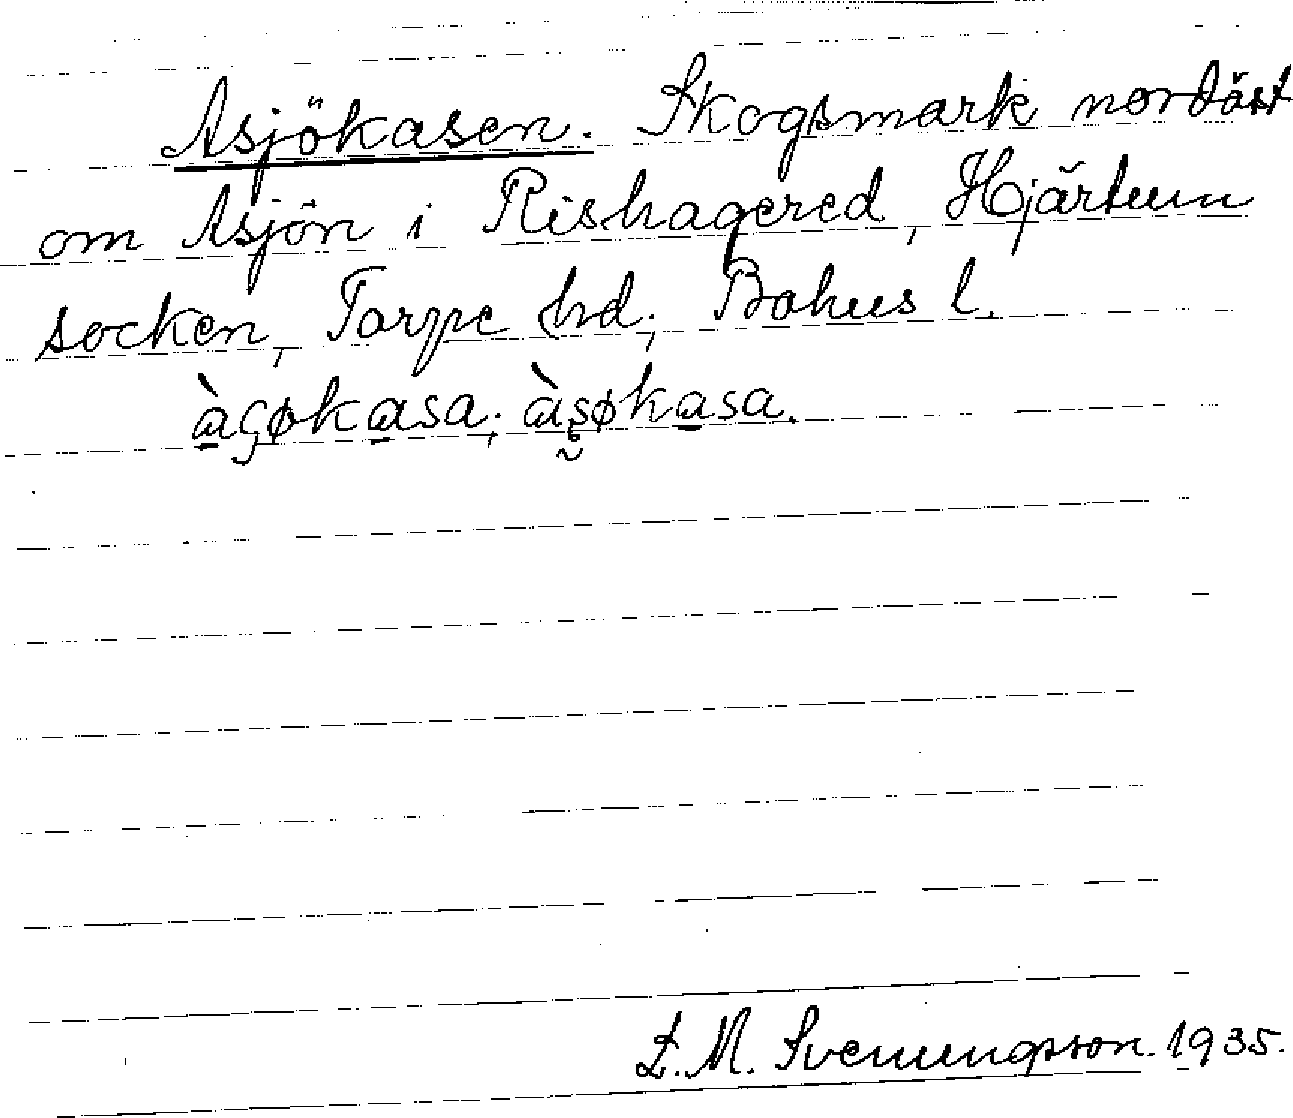 Asjökasen. Skogsmark nordöst
om Asjön i Rishagered, Hjärtum
socken, Torpe hd; Bohus l.
àçøkasa; àşøkasa.
L. M. Svenungsson. 1935.